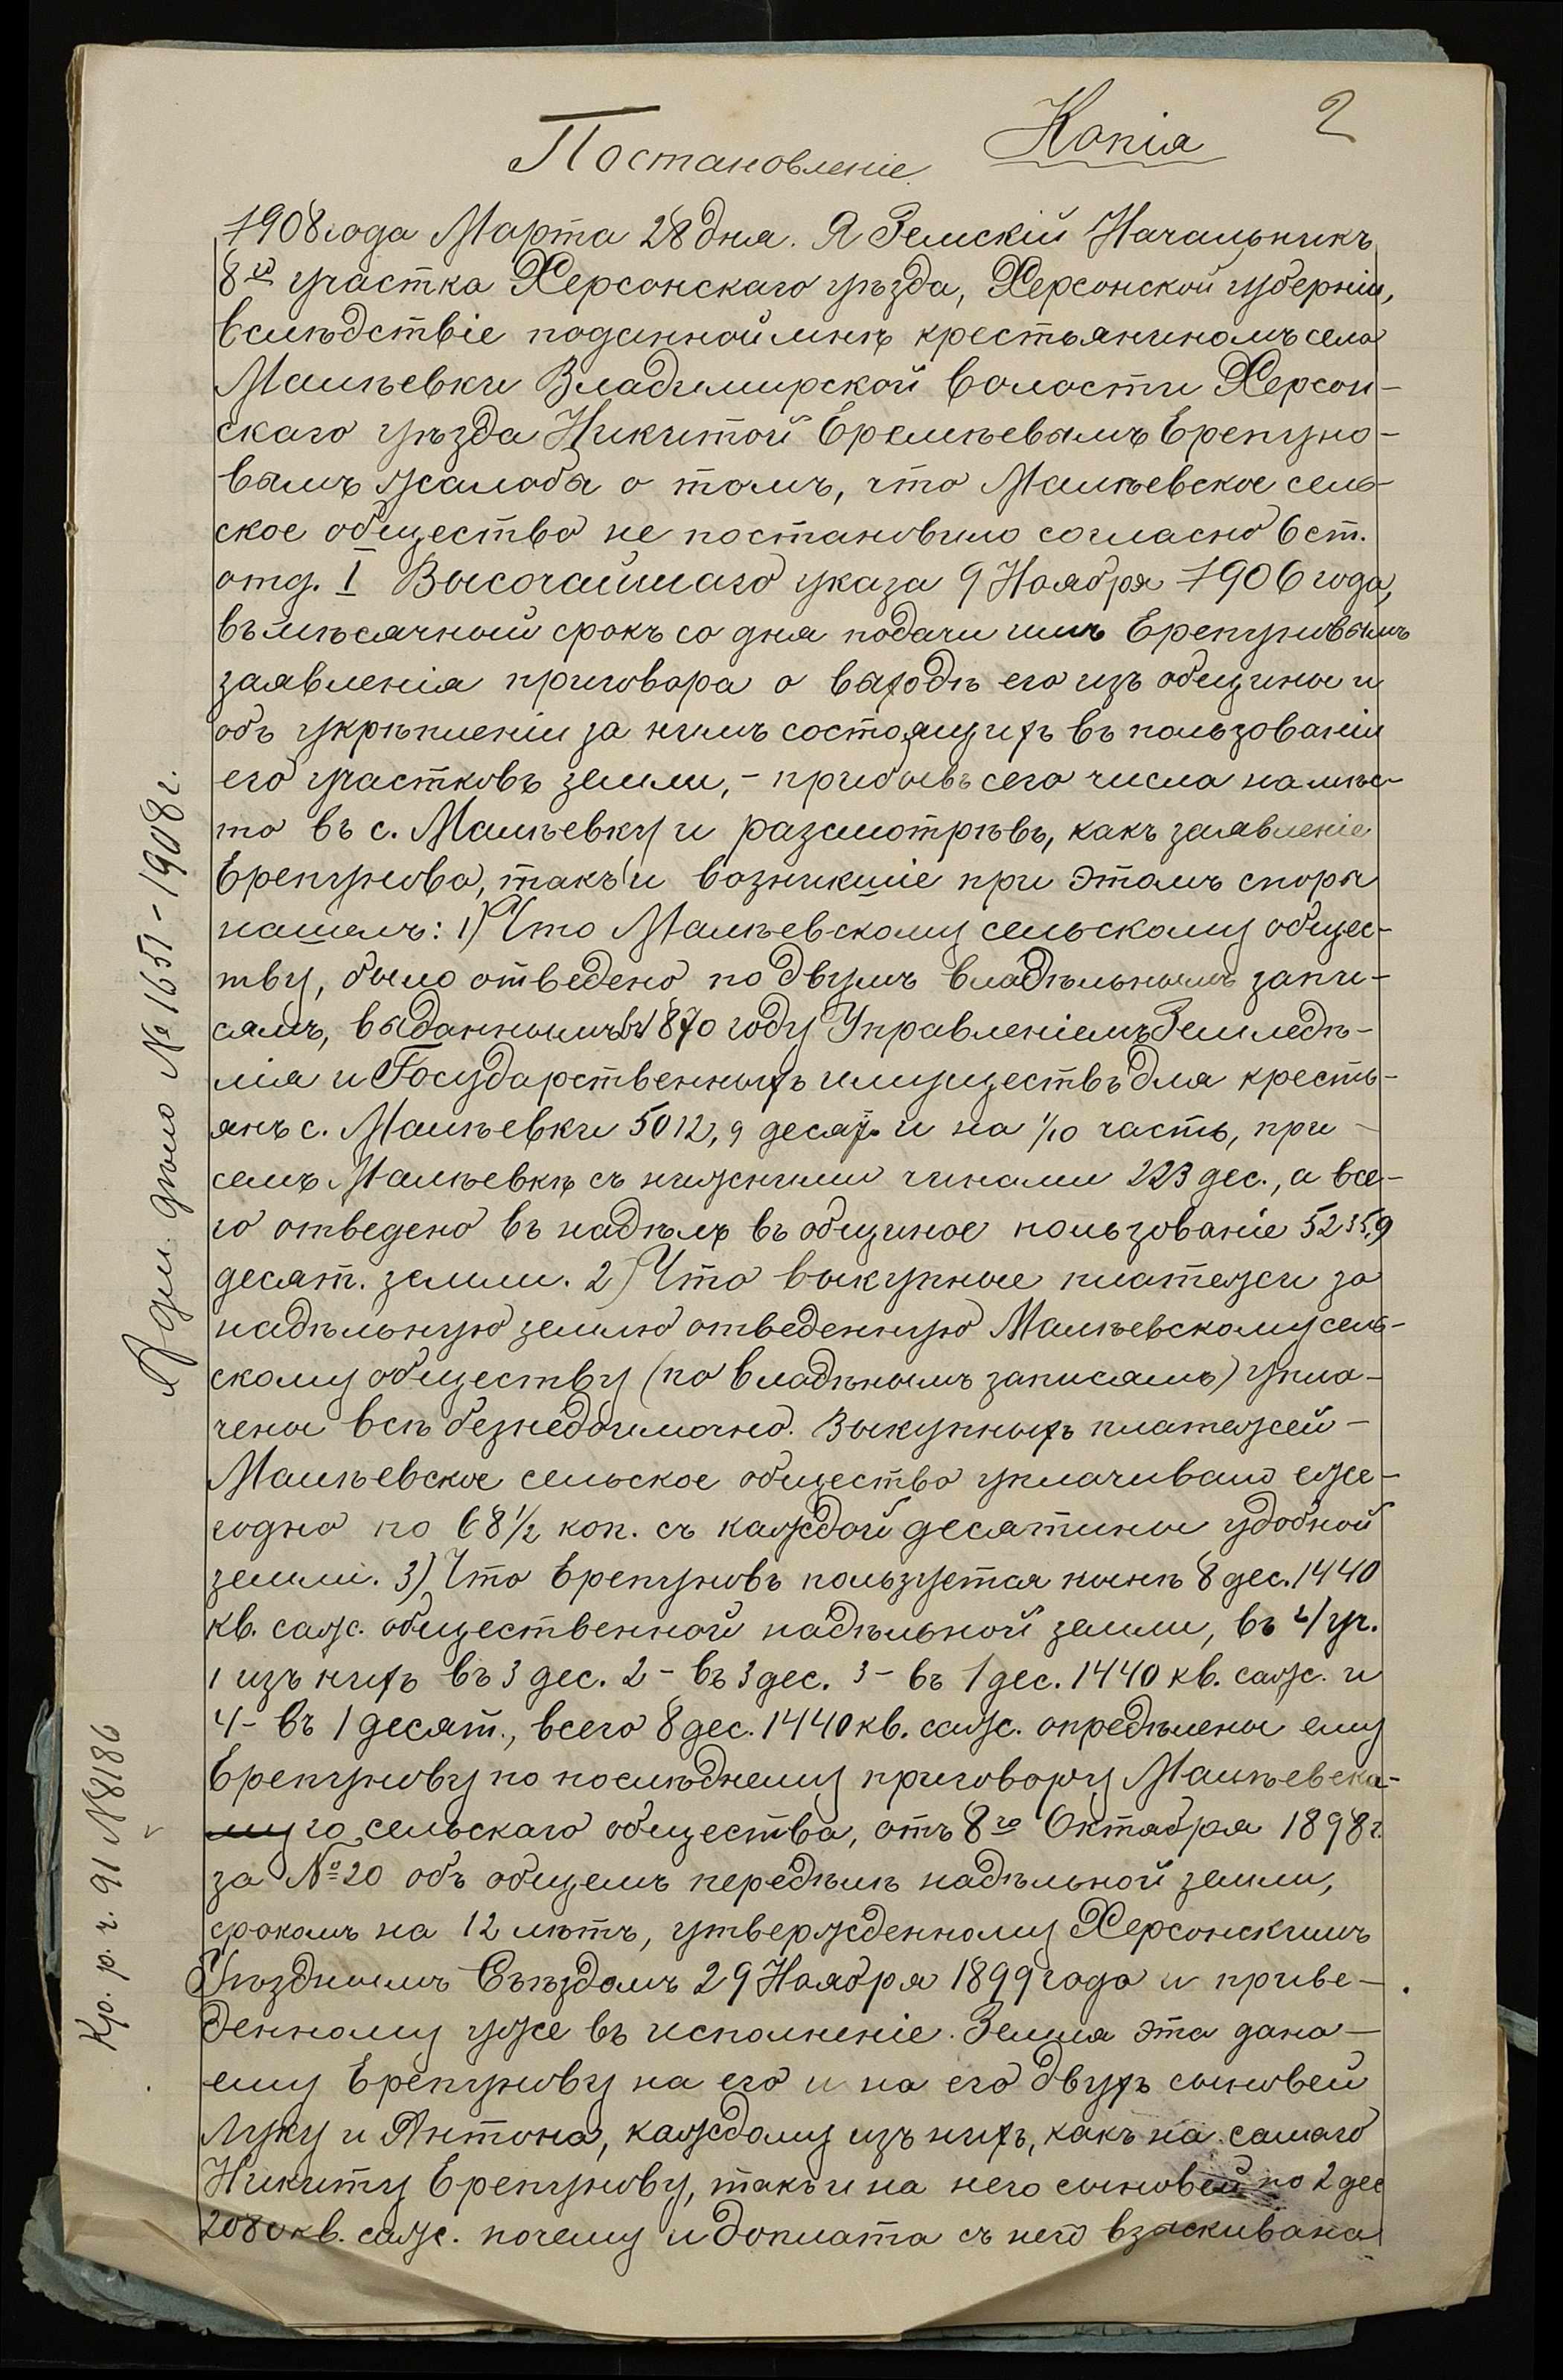 Копія
2
Постановленіе.
1908 года Марта 28 дня. Я Земскій Начальникъ
8го участка Херсонскаго уѣзда, Херсонской губерніи,
вслѣдствіе поданной мнѣ крестьяниномъ села
Малѣевки Владимирской волости Херсон-
скаго уѣзда Никитой Еремѣевымъ Ерепуно-
вымъ жалобы о томъ, что Малѣевское сель-
ское общество не постановило согласно 6 ст.
отд. I Высочайшаго указа 9 Ноября 1906 года,
въ мѣсячный срокъ со дня подачи имъ Ерепуновымъ
заявленія приговора о выходѣ его изъ общины и
объ укрѣпленіи за нимъ состоящихъ въ пользованіи
его участковъ земли, - прибывъ сего числа на мѣс-
то въ с. Малѣевку и разсмотрѣвъ, какъ заявленіе
Ерепунова, такъ и возникшіе при этомъ споры
нашелъ: 1) Что Малѣевскому сельскому общес-
тву, было отведено по двумъ владѣльнымъ запи-
сямъ, выданнымъ въ 1870 году Управленіемъ Земледѣ-
лія и Государственныхъ имуществъ для кресть-
янъ с. Малѣевки 5012,9 десят. и на 1/10 часть, при -
семъ Малѣевкѣ съ нижними чинами 223 дес., а все-
го отведено въ надѣлъ въ общиное пользованіе 5235,9
десят. земли. 2) Что выкупные платежи за
надѣльную землю отведенную Малѣевскому сель-
скому обществу (по владѣнымъ записямъ) упла-
чены всѣ безнедоимочно. Выкупныхъ платежей -
Малѣевское сельское общество уплачивало еже-
годно по 68 1/2 коп. съ каждой десятины удобной
земли. 3) Что Ерепуновъ пользуется нынѣ 8 дес. 1440
кв. саж. общественной надѣльной земли, въ 4/уч.
1 изъ нихъ въ 3 дес. 2 - въ 3 дес. 3 - въ 1 дес. 1440 кв. саж. и
4 - въ 1 десят., всего 8 дес. 1440 кв. саж. опредѣлены ему
Ерепунову по послѣднему приговору Малѣевска-
го сельскаго общества, отъ 8го Октября 1898 г.
за № 20 объ общемъ передѣлѣ надѣльной земли,
срокомъ на 12 лѣтъ, утвержденному Херсонскимъ
Уѣзднымъ Съѣздомъ 29 Ноября 1899 года и приве-
денному уже въ исполненіе. Земля эта дана -
ему Ерепунову на его и на его двухъ сыновей
Луку и Антона, каждому изъ нихъ, какъ на самаго
Никиту Ерепунову, такъ и на него сыновей по 2 дес
2080 кв. саж. почему и доплата съ него взаскивана
Адм. дѣло № 1651 - 1908 г.
Кр. р. ч. 91 № 8186